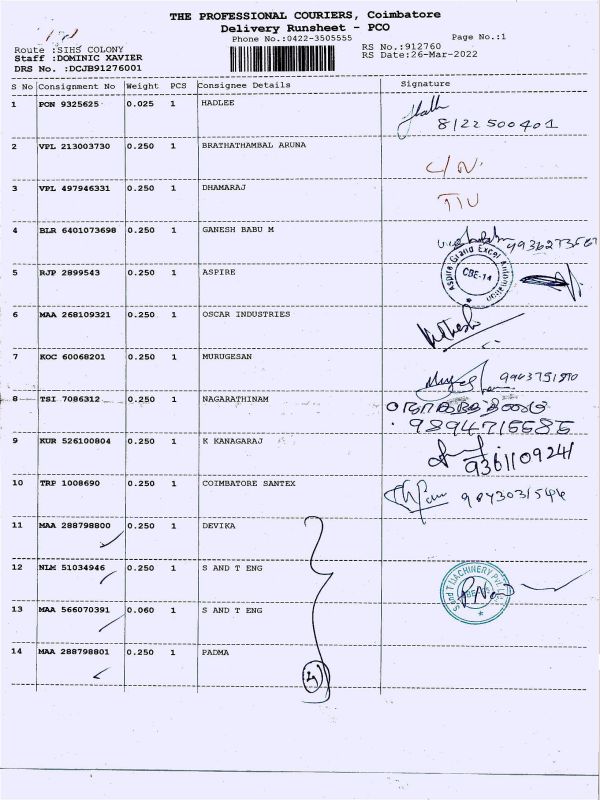 THE PROFESSIONAL COURIERS, Coimbatore
Delivery Runsheet - PCO
Phone No.:0422-3505555
Page No.:1
Route :SIHS COLONY
RS No.:912760
Staff :DOMINIC XAVIER
RS Date:26-Mar-2022
DRS No. :DCJB91276001
S No Consignment No Weight PCS Consignee Details Signature
1 PON 9325625 0.025 1 HADLEE
8122500401
2 VPL 213003730 0.250 1 BRATHATHAMBAL ARUNA
C/N.
3 VPL 497946331 0.250 1 DHAMARAJ
4 BLR 6401073698 0.250 1 GANESH BABU M
5 RJP 2899543 0.250 1 ASPIRE
Aspire Grand Excel Automation
CBE-14
6 MAA 268109321 0.250 1 OSCAR INDUSTRIES
7 KOC 60068201 0.250 1 MURUGESAN
8 TSI 7086312 0.250 1 NAGARATHINAM
9 KUR 526100804 0.250 1 K KANAGARAJ
9361109241
10 TRP 1008690 0.250 1 COIMBATORE SANTEX
11 MAA 288798800 0.250 1 DEVIKA
12 NLM 51034946 0.250 1 S AND T ENG
S and T MACHINERY Pvt.
13 MAA 566070391 0.060 1 S AND T ENG
14 MAA 288798801 0.250 1 PADMA